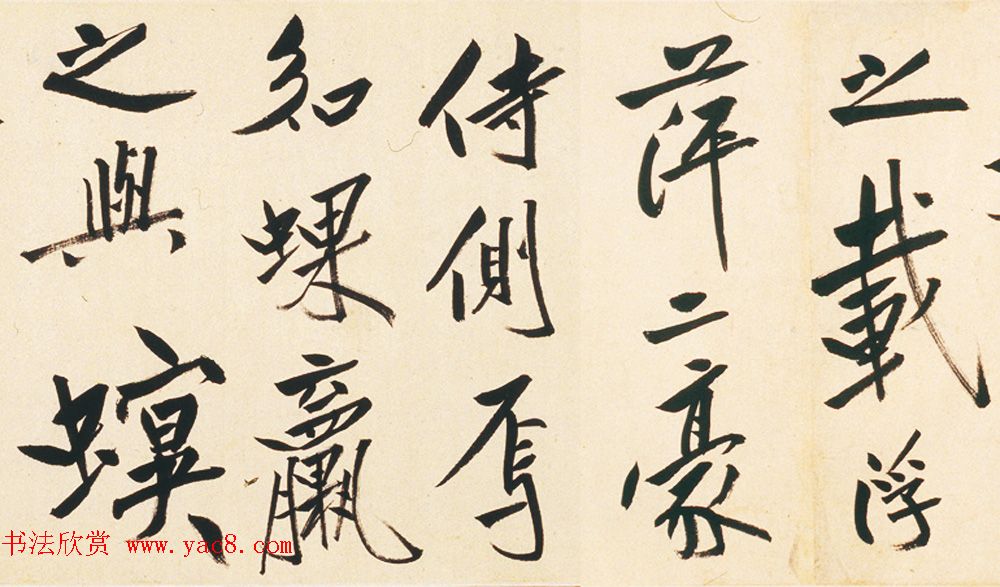 之載浮
萍二豪
侍側焉
如蜾蠃
之與螟
书法欣赏 www.yac8.com